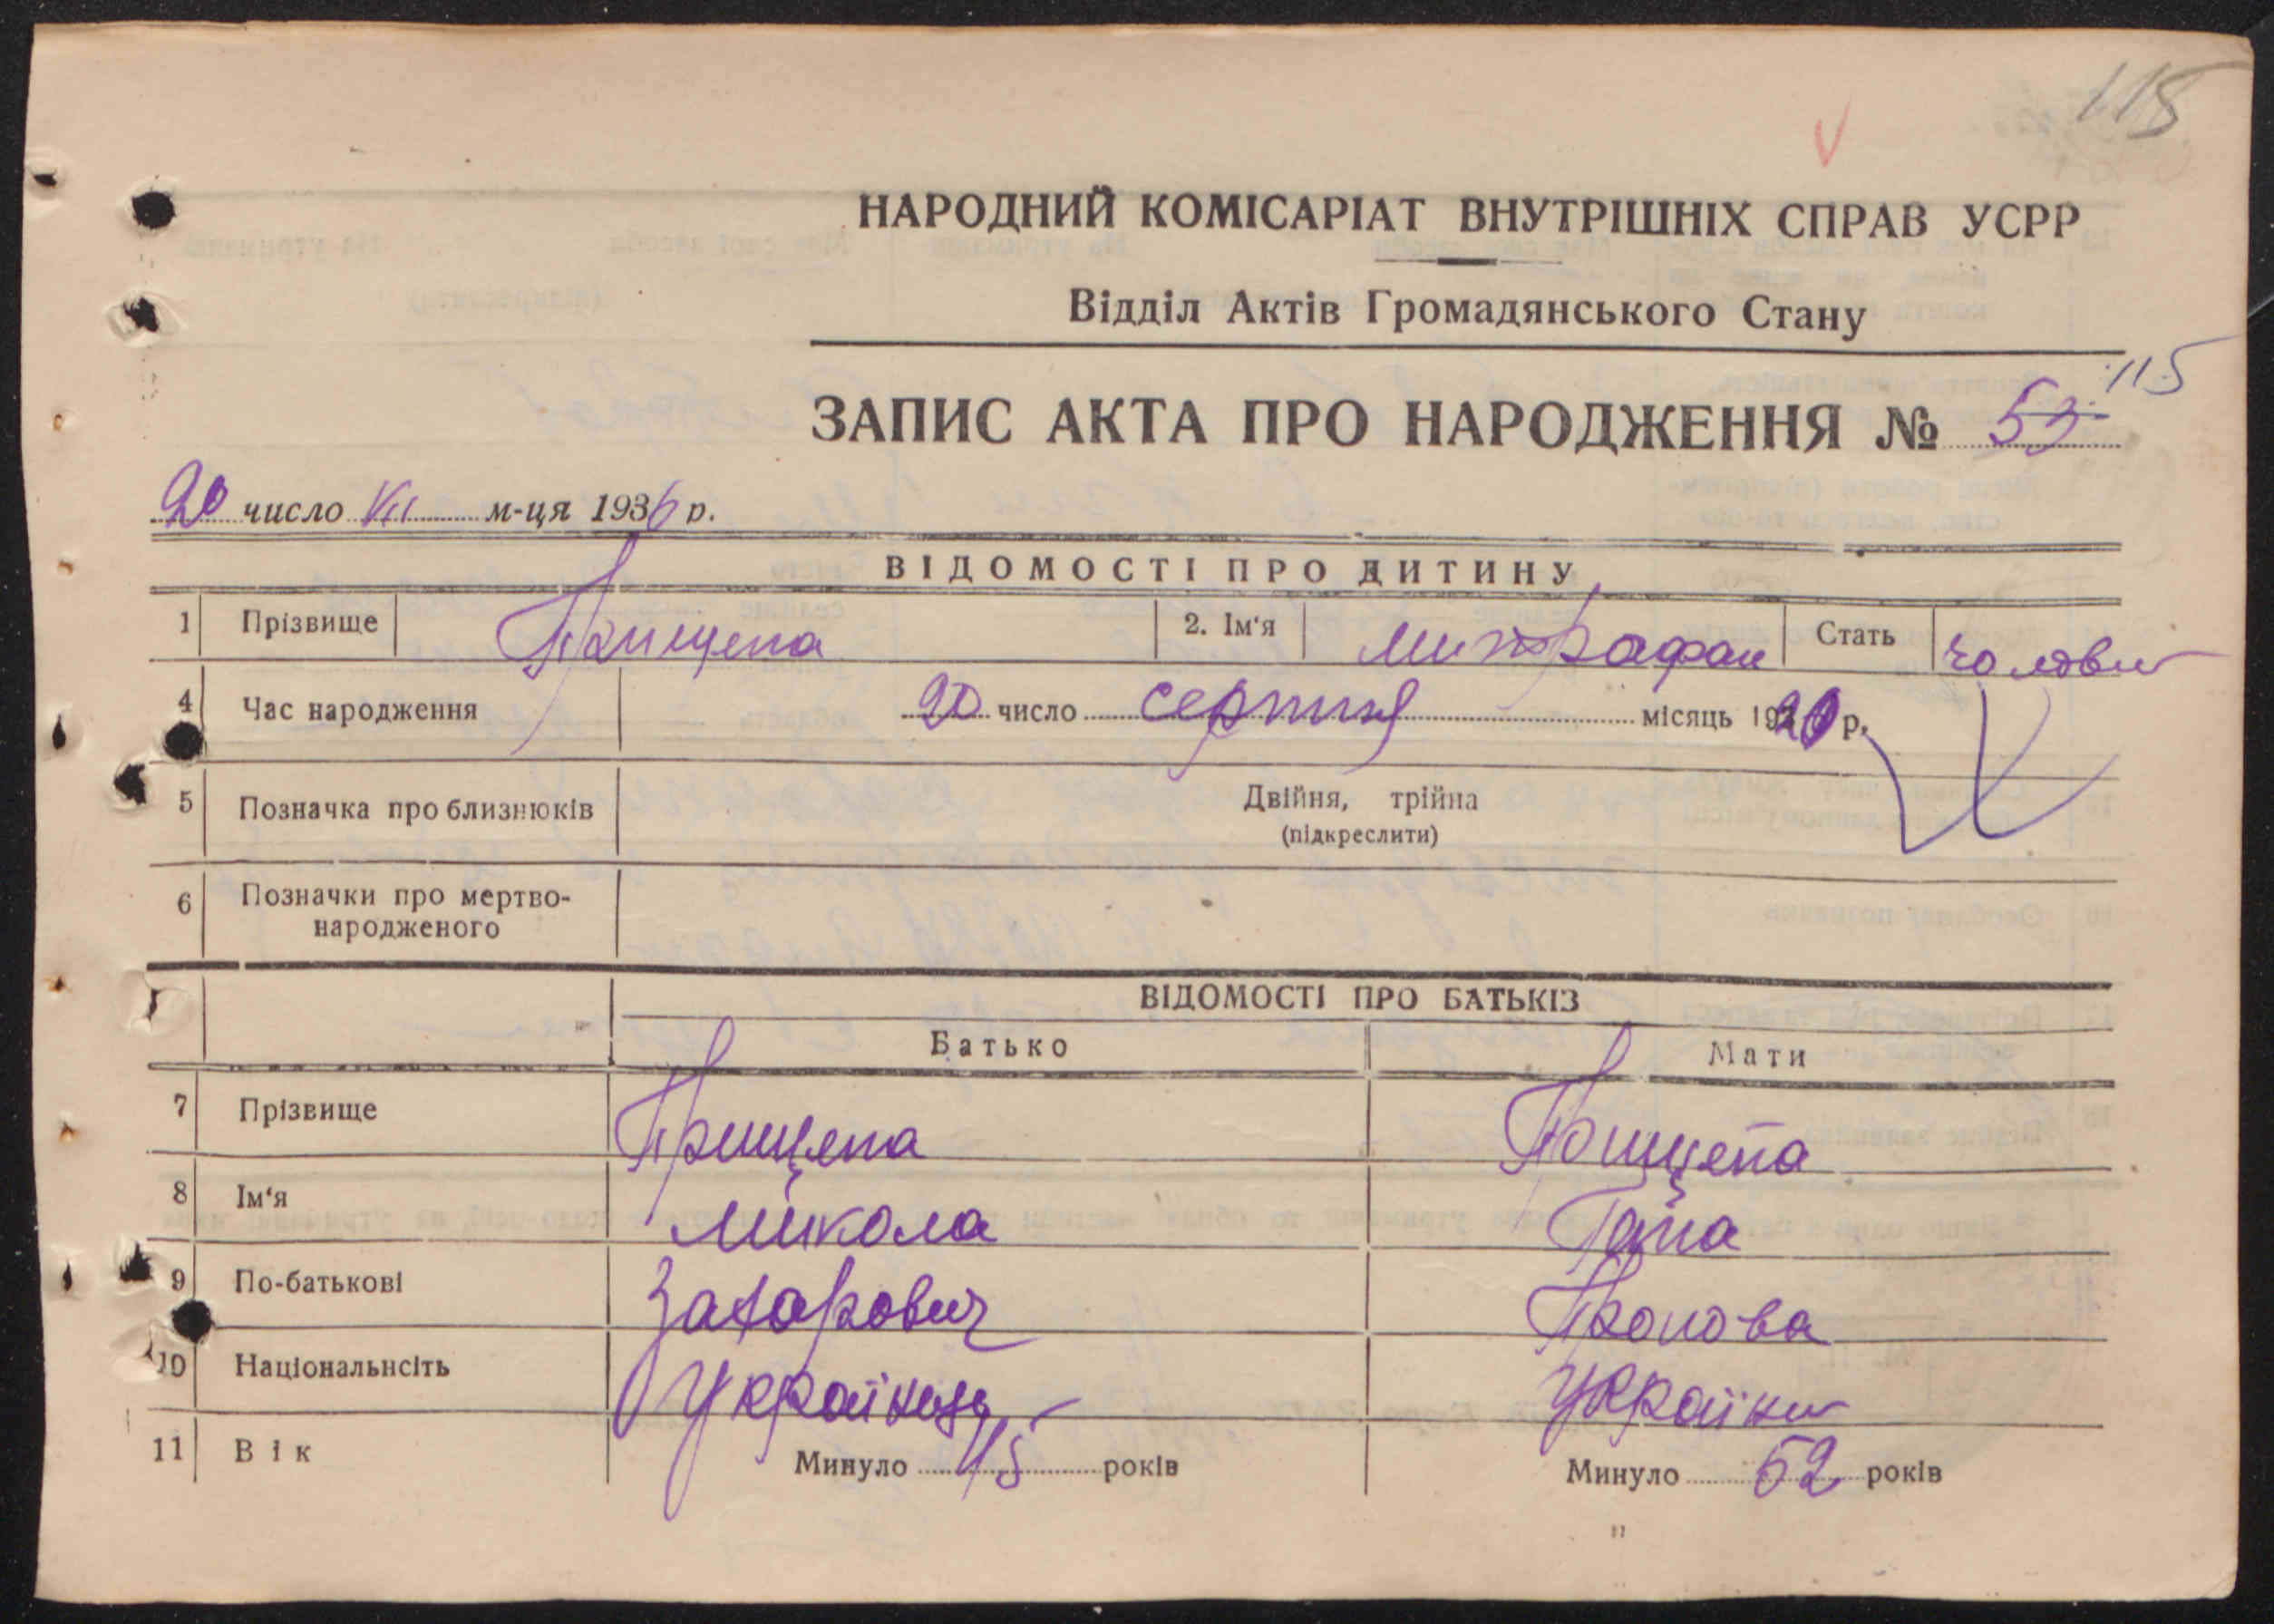 115
НАРОДНИЙ КОМІСАРІАТ ВНУТРІШНІХ СПРАВ УСРР
Відділ Актів Громадянського Стану
ЗАПИС АКТА ПРО НАРОДЖЕННЯ № 53 115
20 число VII м-ця 1936 р.
ВІДОМОСТІ ПРО ДИТИНУ
1 Прізвище Прищепа 2. Ім‘я Митрафан Стать чолови
4 Час народження 20 число серпня місяць 1920 р.
5 Позначка про близнюків Двійня, трійна
(підкреслити)
6 Позначки про мертво-
народженого
ВІДОМОСТІ ПРО БАТЬКІЗ
Батько Мати
7 Прізвище Прищепа Прищепа
8 Ім‘я Микола
9 По-батькові Захарович
10 Національнсіть Українець Українк
11 Вік Минуло 45 років Минуло 52 років